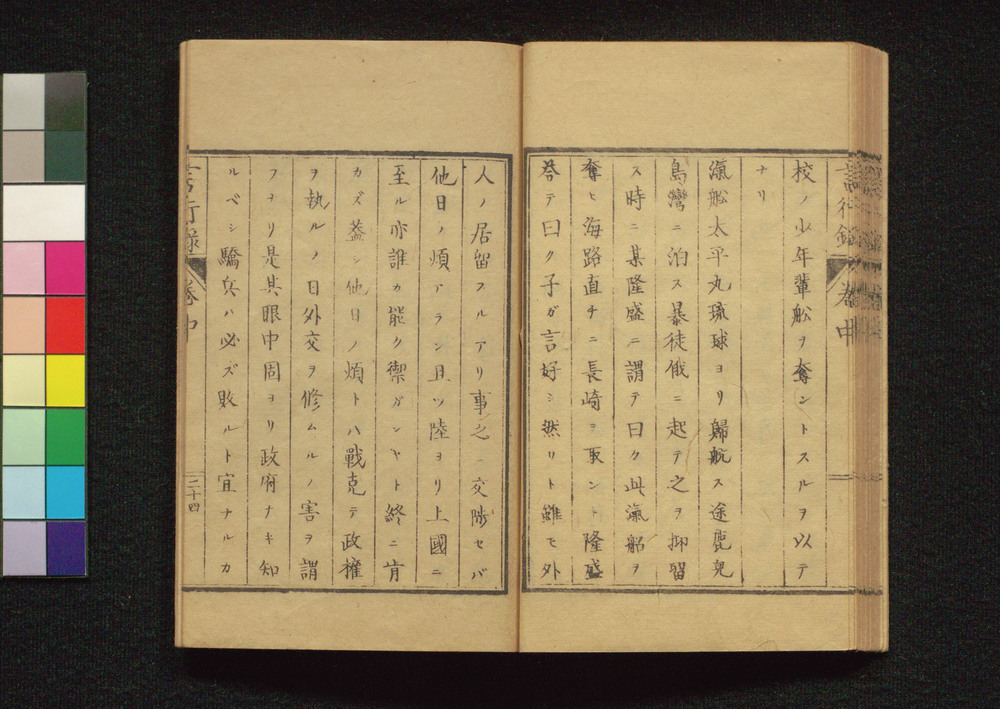 校ノ少年輩舩ヲ奪ントスルヲ以テ
ナリ
滊舩太平丸琉球ヨリ歸航ス途鹿兒
島灣ニ泊ス暴徒俄ニ起テ之ヲ抑留
ス時ニ某隆盛ニ謂テ曰ク此滊船ヲ
奪ヒ海路直チニ長崎ヲ取ント隆盛
荅テ曰ク子ガ言好シ然リト雖モ外
人ノ居留スルアリ事之ニ交渉セバ
他日ノ煩アラン且ツ陸ヨリ上國ニ
至ル亦誰カ能ク禦ガンヤト終ニ肯
カズ葢シ他日ノ煩トハ戰克テ政權
ヲ執ルノ日外交ヲ修ムルノ害ヲ謂
フナリ是其眼中固ヨリ政府ナキ知
ルベシ驕兵ハ必ズ敗ルト宜ナルカ
言行録 卷中
二十四